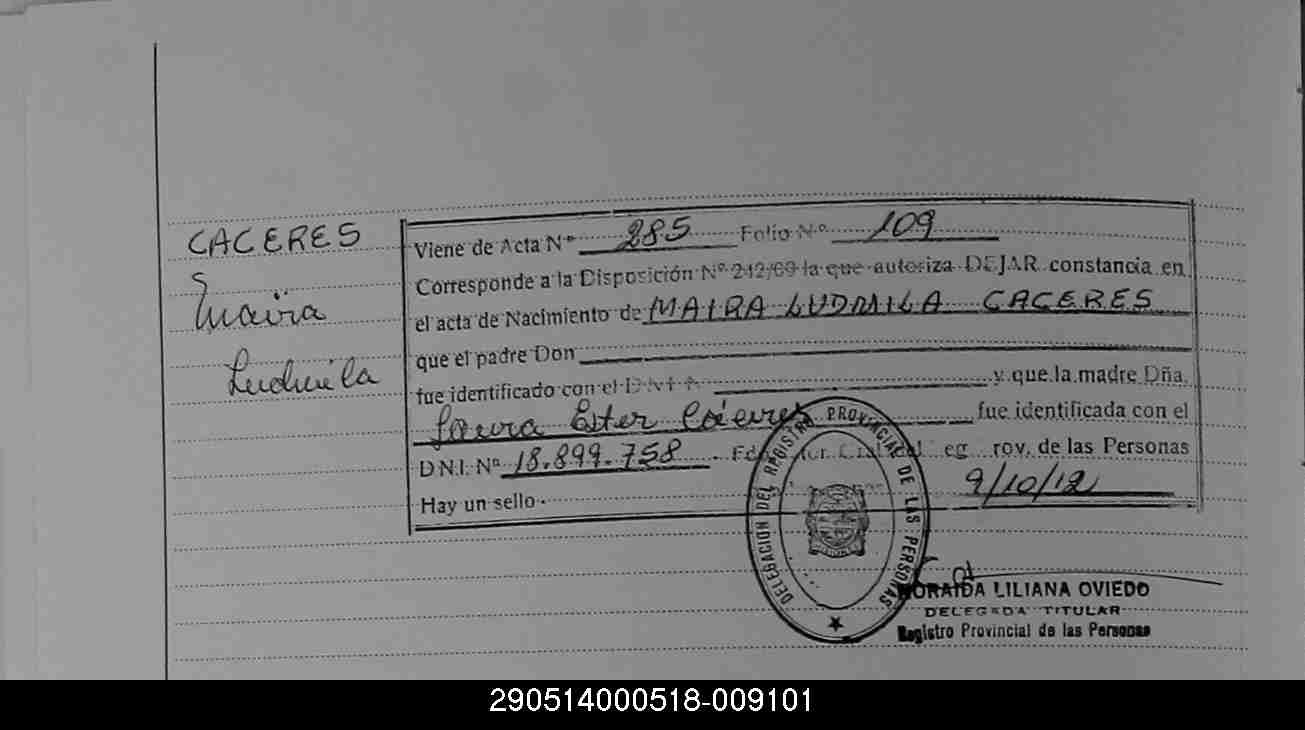 CACERES
Maïra
Ludmila
Viene de Acta Nº 285 Folio Nº 109
Corresponde a la Disposición Nº 242/69 la que autoriza DEJAR constancia en
el acta de Nacimiento de MAIRA LUDMILA CACERES
que el padre Don
fue identificado con el D N I Nº y que la madre Dña.
Laura Ester Cáceres fue identificada con el
D N.I. Nº 18.899.758 . Reg rov. de las Personas
Hay un sello. 9/10/12
DELEGACION DEL REGISTRO PROVINCIAL DE LAS PERSONAS
NORAIDA LILIANA OVIEDO
DELEGADA TITULAR
Registro Provincial de las Personas
290514000518-009101